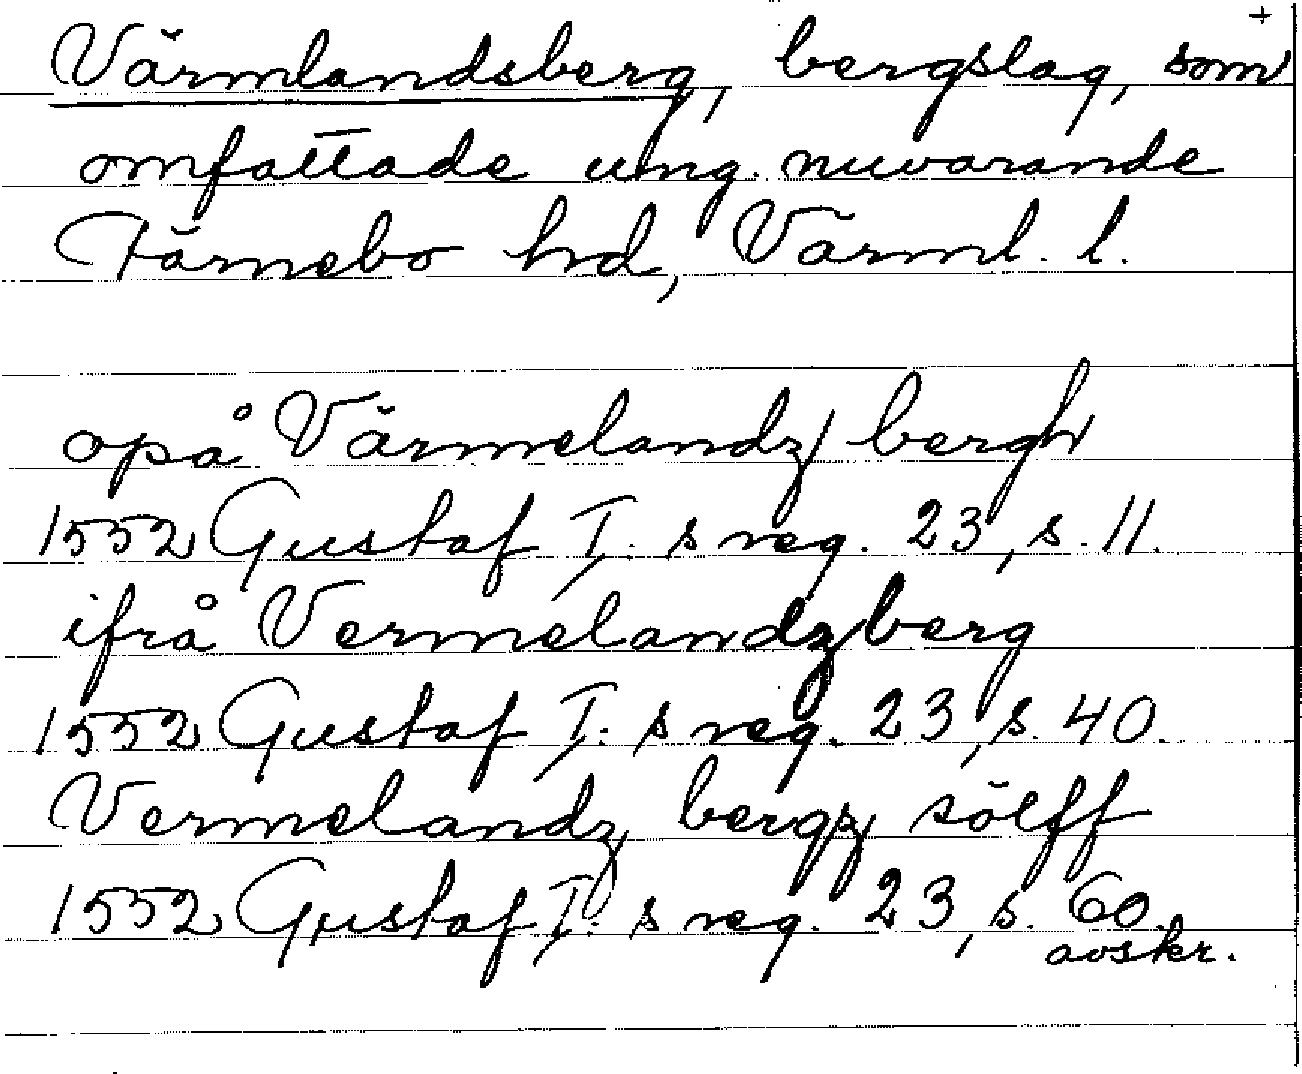 +
Värmlandsberg, bergslag, som
omfattade ung. nuvarande
Färnebo hd, Värml. l.
opå Värmelandz bergh
1552 Gustaf I:s reg. 23, s. 11.
ifrå Vermelandzberg
1552 Gustaf I:s reg. 23, s. 40.
Vermelandz bergz sölff
1552 Gustaf I:s reg. 23, s. 60.
avskr.